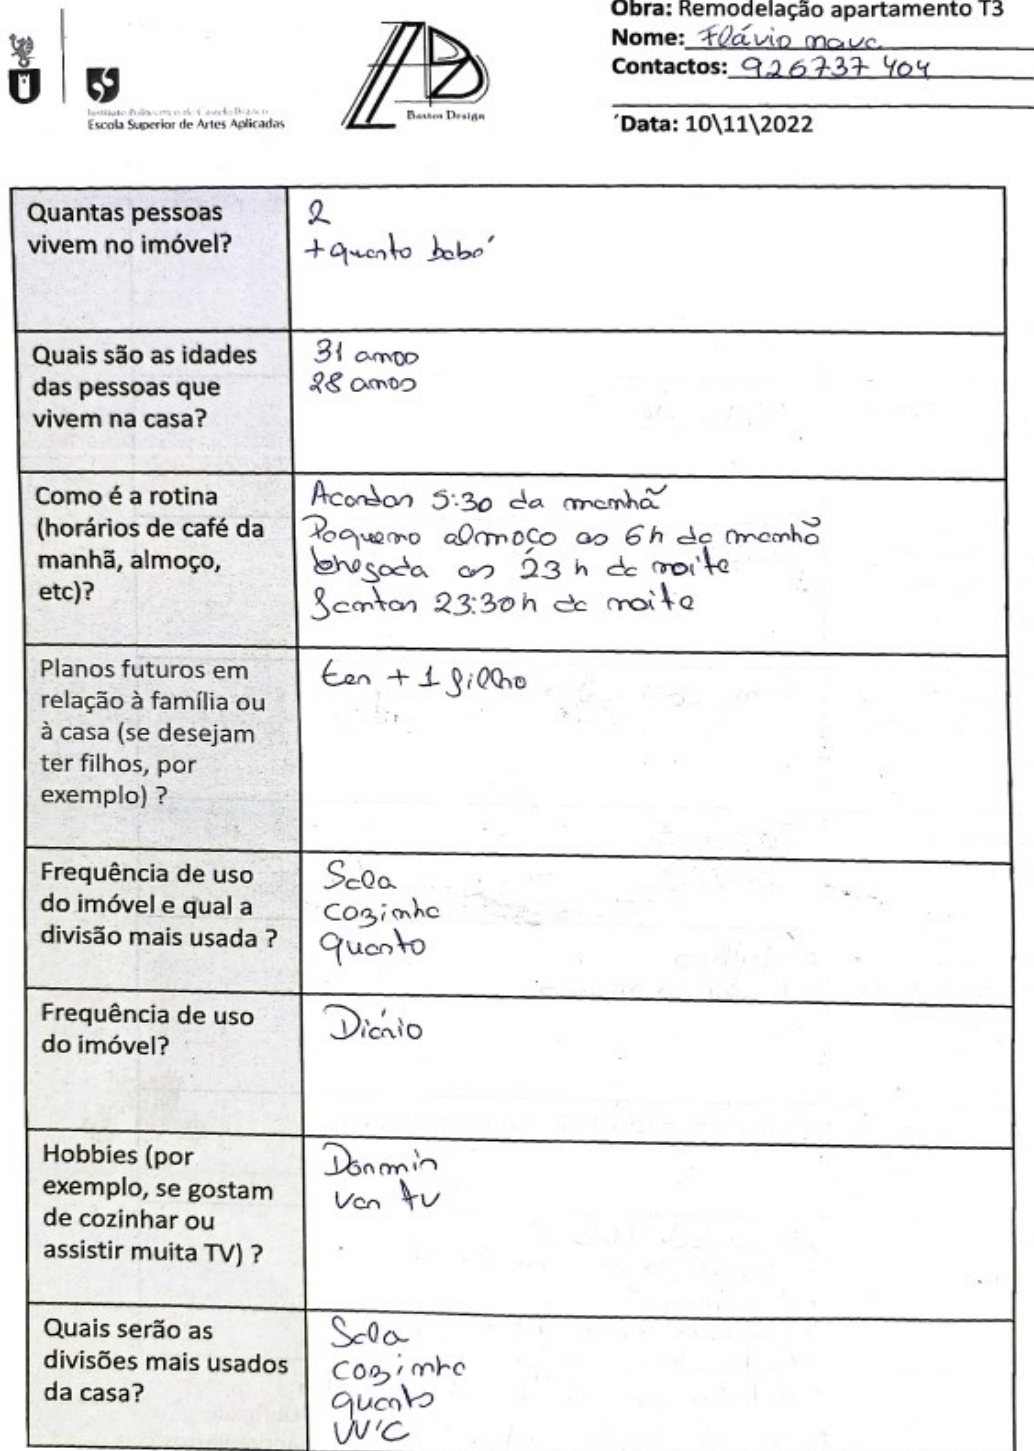 Obra: Remodelação apartamento T3
Nome: Flávio
Contactos: 926737 404
Instituto Politécnico de Castelo Branco
Escola Superior de Artes Aplicadas
Bastos Design
´Data: 10\11\2022
Quantas pessoas
vivem no imóvel?
2
+ quarto bebé
Quais são as idades
das pessoas que
vivem na casa?
31 anos
28 anos
Como é a rotina
(horários de café da
manhã, almoço,
etc)?
Acordar 5:30 da manhã
Pequeno almoço as 6h da manhã
Chegada as 23 h da noite
Jantar 23:30h da noite
Planos futuros em
relação à família ou
à casa (se desejam
ter filhos, por
exemplo) ?
ter + 1 filho
Frequência de uso
do imóvel e qual a
divisão mais usada ?
Sala
cozinha
quarto
Frequência de uso
do imóvel?
Diário
Hobbies (por
exemplo, se gostam
de cozinhar ou
assistir muita TV) ?
Dormir
ver tv
Quais serão as
divisões mais usados
da casa?
Sala
cozinha
quarto
W'C